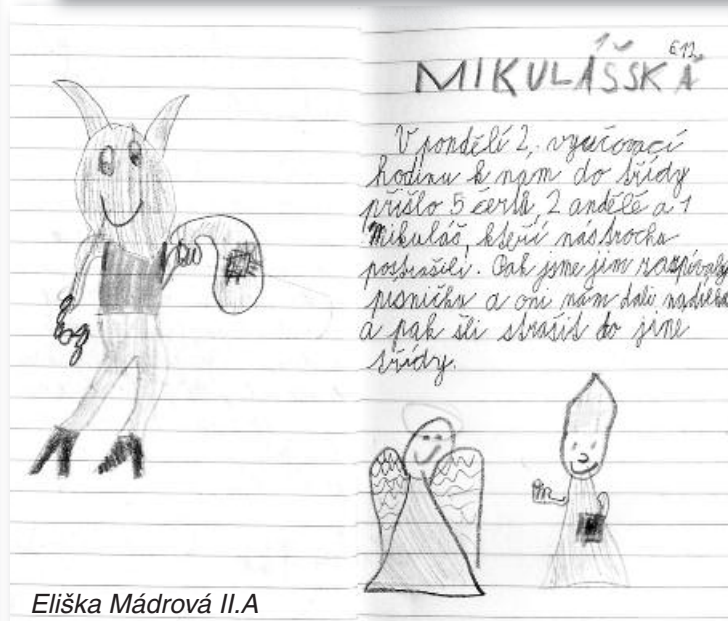 6.12.
MIKULÁŠSKÁ
V pondělí 2. vyučovací
hodinu k nám do třídy
přišlo 5 čertů, 2 andělé a 1
Mikuláš, kteří nás trochu
postrašili. Pak jsme jim zazpívaly
písničku a oni nám dali nadílku
a pak šli strašit do jiné
třídy.
Eliška Mádrová II.A